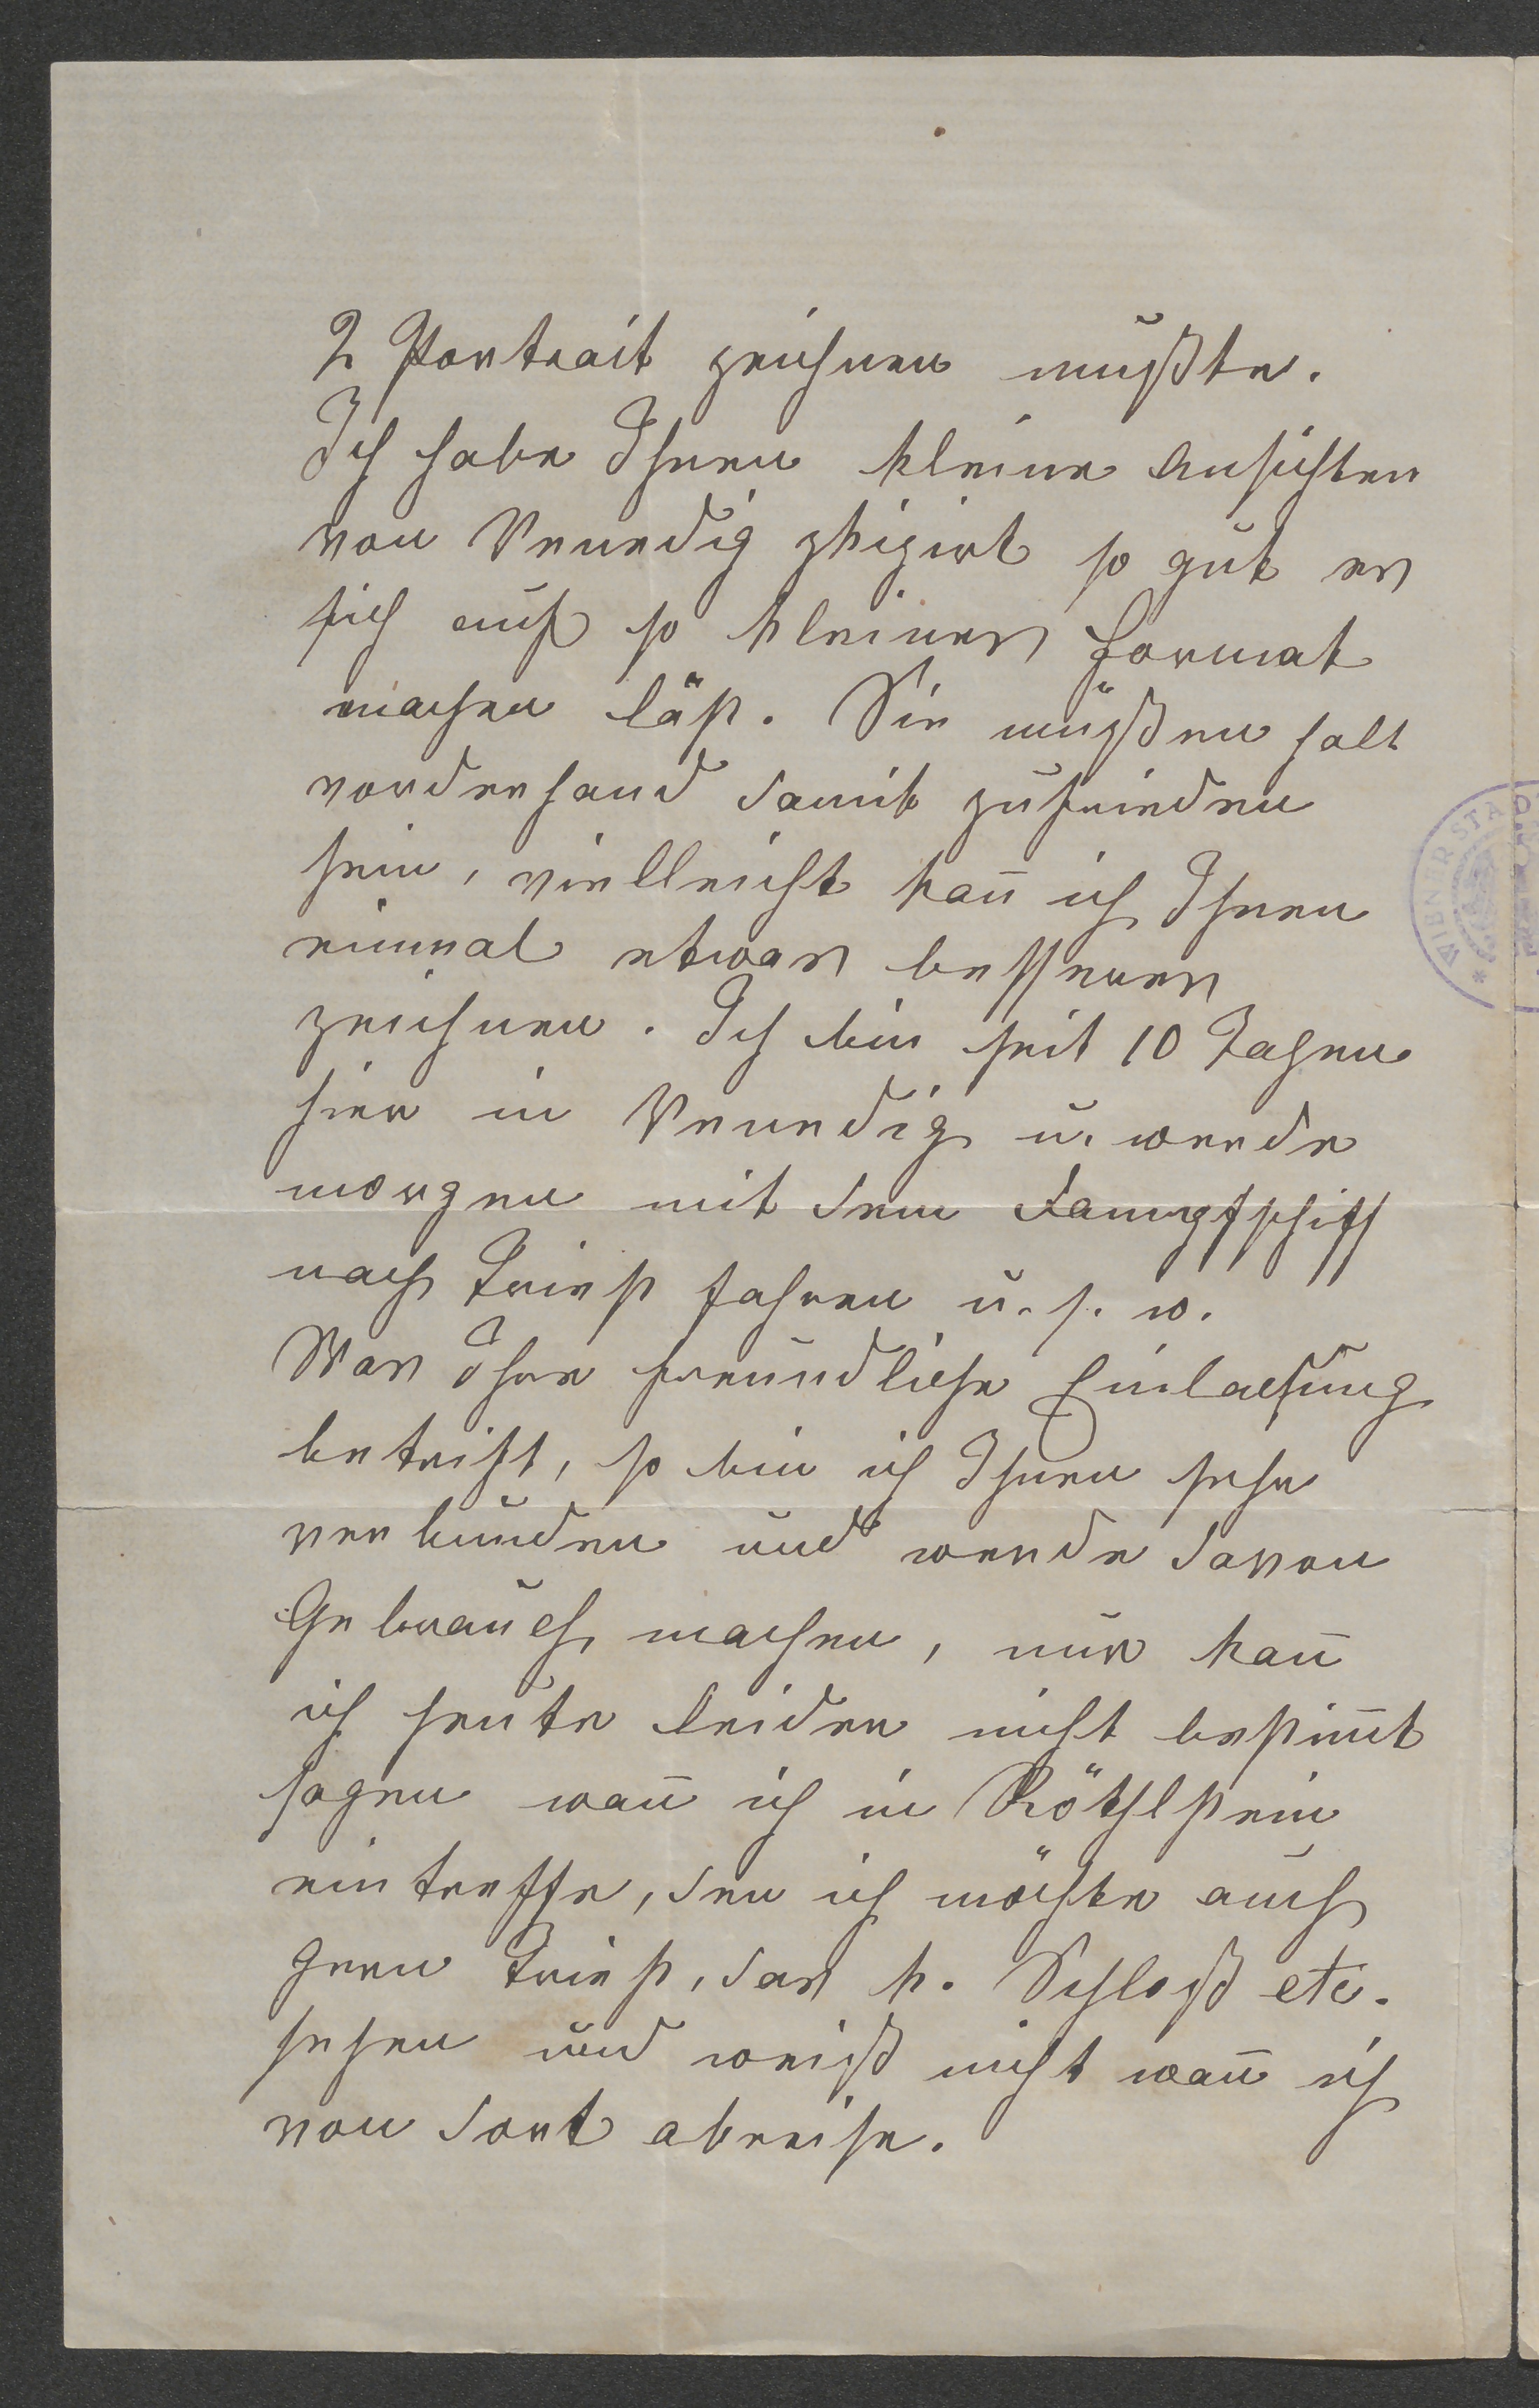 2 Portrait zeichnen mußte.
Ich habe Ihnen kleine Ansichten
von Venedig skizirt so gut es
sich auf so kleines Format
machen läßt. Sie müßen halt
vorderhand damit zufrieden
sein, vielleicht kan̄ ich Ihnen
einmal etwas besseres
zeichnen. Ich bin seit 10 Tagen
hier in Venedig u. werde
morgen mit dem Dampfschiff
nach Triest fahren u. s. w.
Was Ihre freundliche Einladung
betrift, so bin ich Ihnen sehr
verbunden und werde davon
Gebrauch machen, nur kan̄
ich heute leider nicht bestim̄t
sagen wan̄ ich in Röthlstein
eintreffe, den ich möchte auch
gern Triest, das k. Schloß etc.
sehen und weiß nicht wan̄ ich
von dort abreise.
WIENER STADT